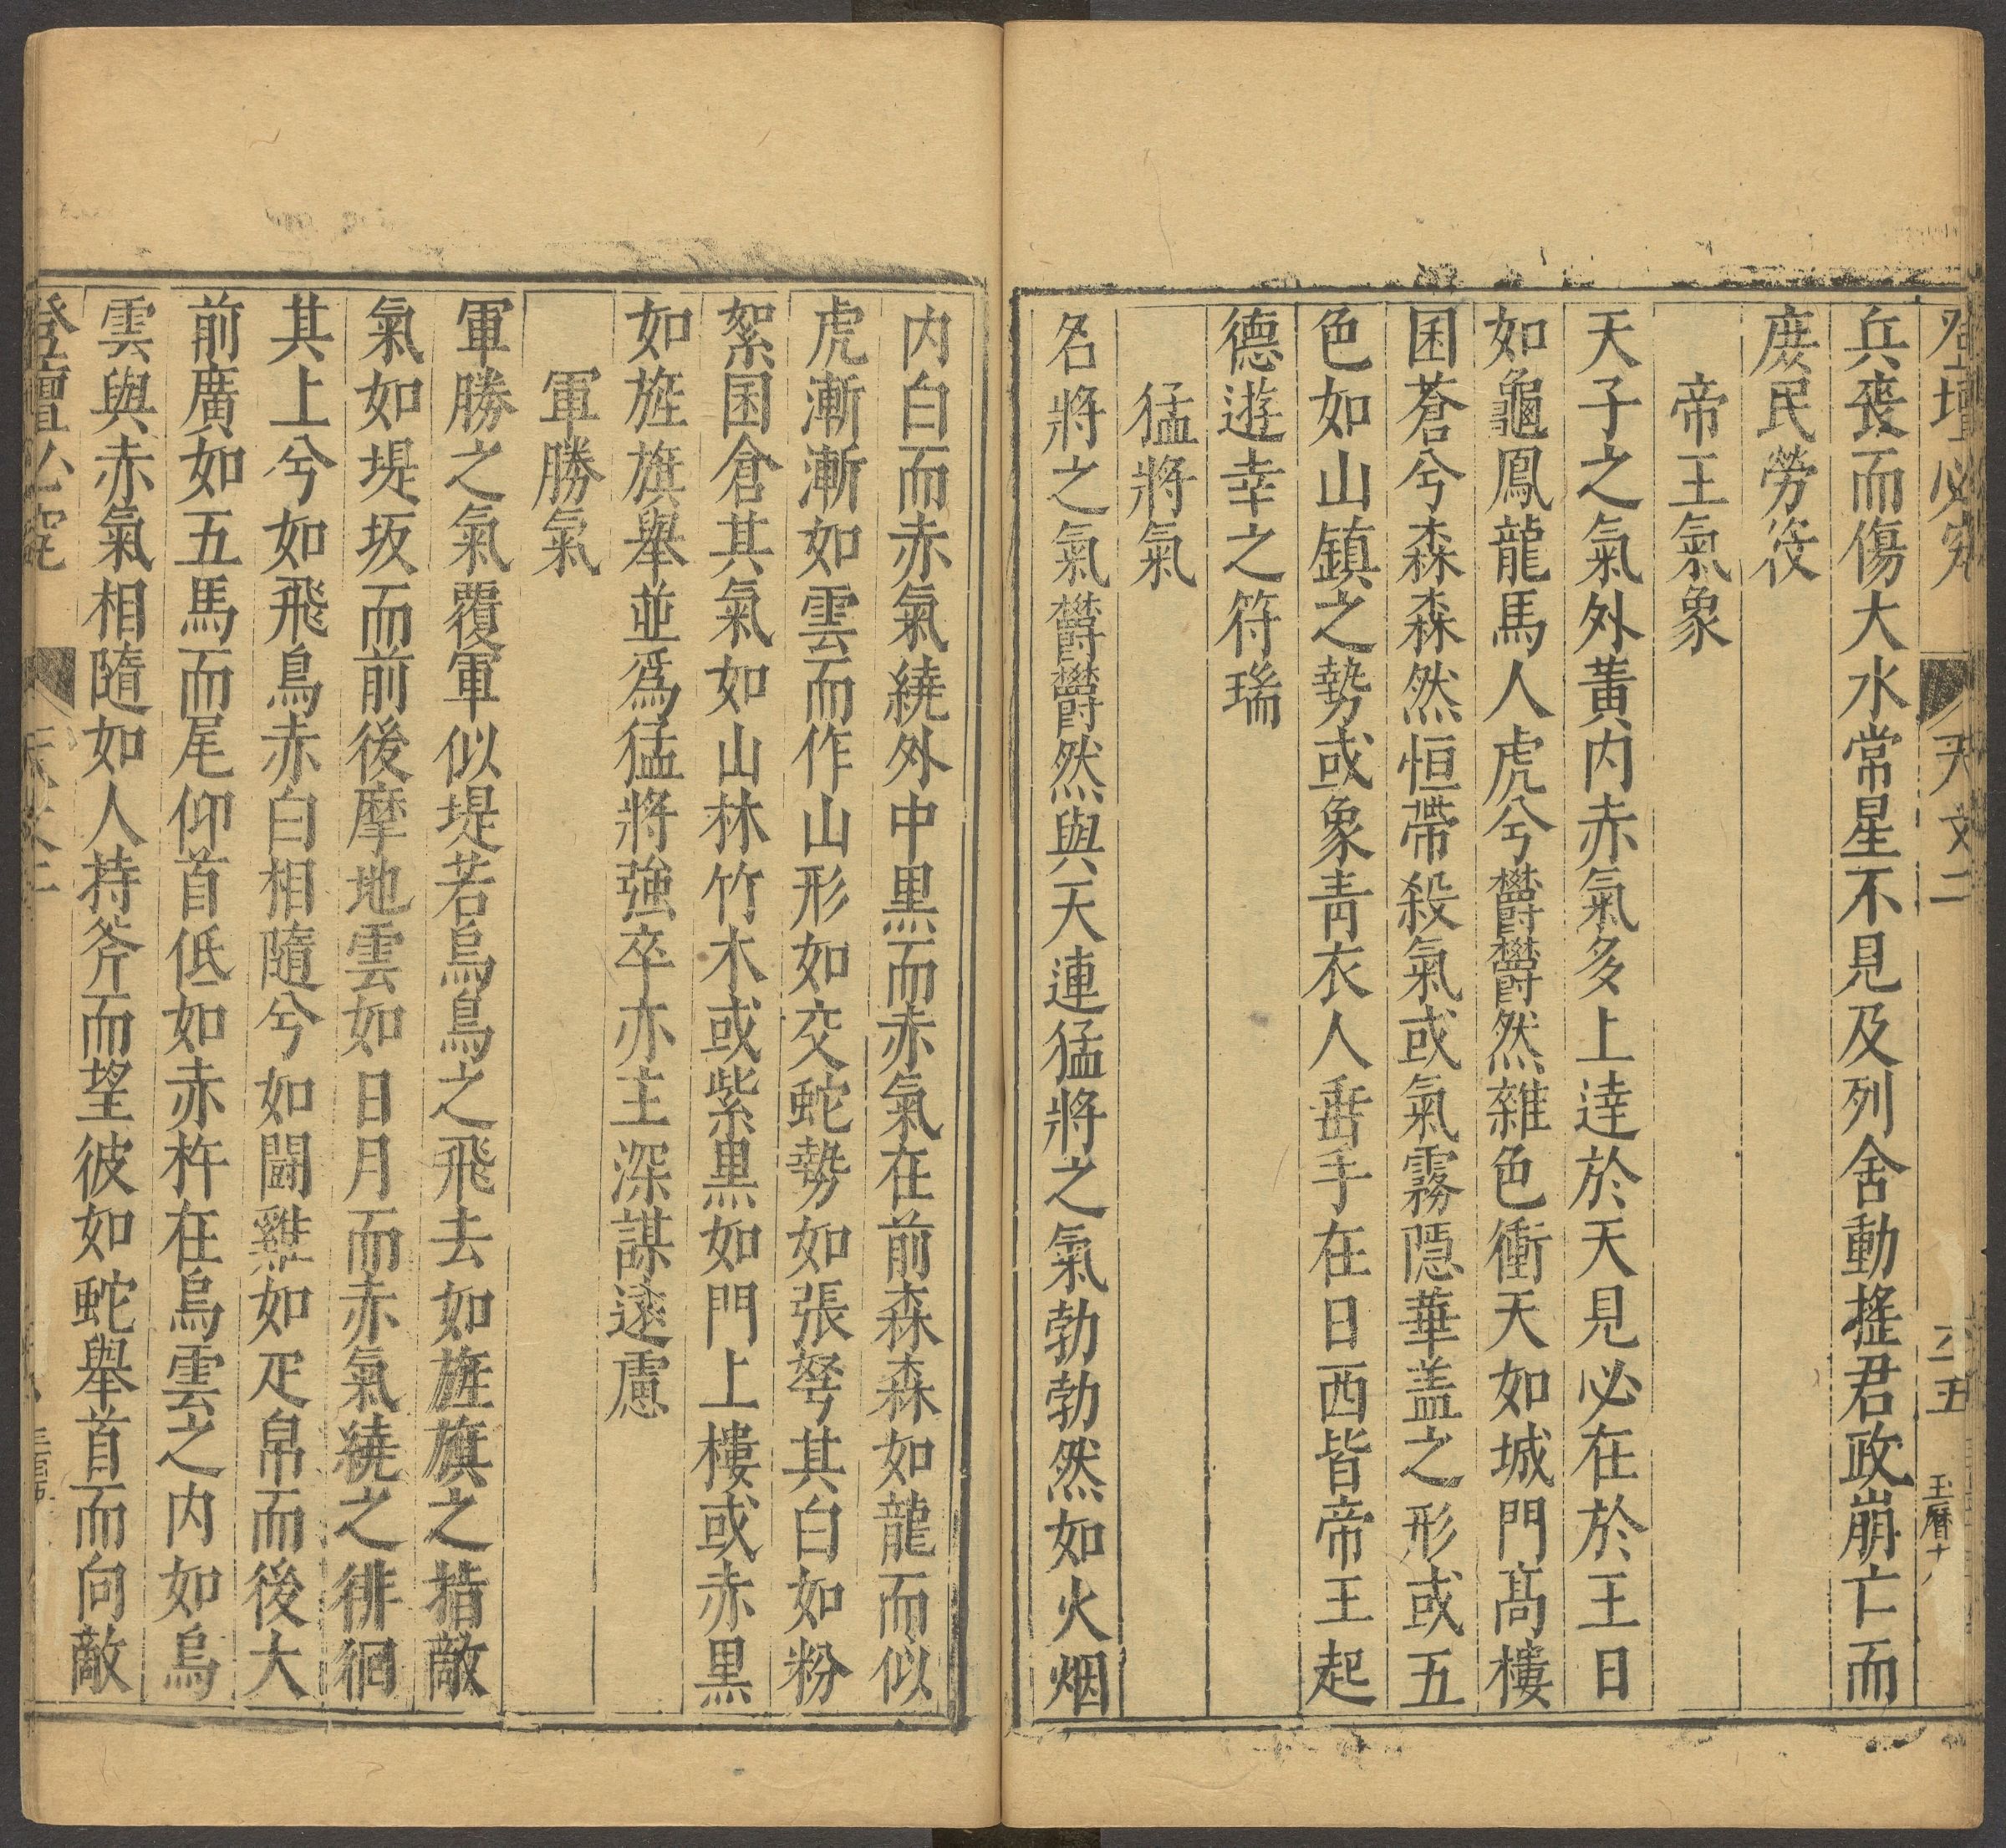 登壇必究 天文二 六五 玉曆十
兵喪而傷大水常星不見及列舍動搖君政崩亡而
庻民勞役
帝王氣象
天子之氣外黃内赤氣多上逹於天見必在於王日
如龜鳳龍馬人虎兮欝欝然雜色衝天如城門髙樓
囷蒼兮森森然恒帶殺氣或氣霧隱華盖之形或五
色如山鎮之勢或象青衣人垂手在日西皆帝王起
德遊幸之符瑞
猛將氣
名將之氣欝欝然與天連猛將之氣勃勃然如火烟
内白而赤氣繞外中黒而赤氣在前森森如龍而似
虎漸漸如雲而作山形如交蛇勢如張弩其白如粉
絮囷倉其氣如山林竹木或紫黒如門上樓或赤黒
如旌旗舉並爲猛將強卒亦主深謀遠慮
軍勝氣
軍勝之氣覆軍似堤若烏鳥之飛去如旌旗之指敵
氣如堤坂而前後摩地雲如日月而赤氣繞之徘徊
其上兮如飛鳥赤白相隨兮如鬭雞如疋帛而後大
前廣如五馬而尾仰首低如赤杵在烏雲之内如烏
雲與赤氣相隨如人持斧而望彼如蛇舉首而向敵
登壇必究 天文二